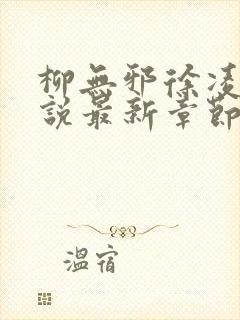 柳無邪徐凌
說最新章節
溫宿